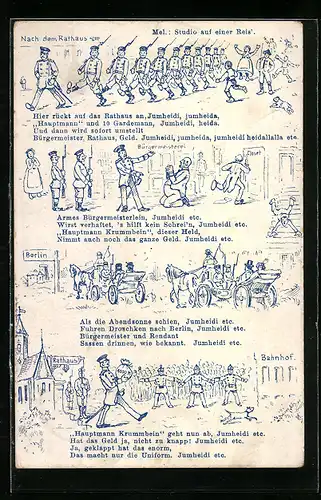 Nach dem Rathaus
Mel.: Studio auf einer Reis'.
Hier rückt auf das Rathaus an, Jumheidi, jumheida,
„Hauptmann“ und 10 Gardemann, Jumheidi, heida.
Und dann wird sofort umstellt
Bürgermeister, Rathaus, Geld. Jumheidi, jumheida, jumheidi heidallala etc.
Bürgermeisterei
Armes Bürgermeisterlein, Jumheidi etc.
Wirst verhaftet, 's hilft kein Schrei'n, Jumheidi etc.
„Hauptmann Krummbein“, dieser Held,
Nimmt auch noch das ganze Geld. Jumheidi etc.
Berlin
Als die Abendsonne schien, Jumheidi etc.
Fuhren Droschken nach Berlin, Jumheidi etc.
Bürgermeister und Rendant
Sassen drinnen, wie bekannt. Jumheidi etc.
Rathaus
Bahnhof.
„Hauptmann Krummbein“ geht nun ab, Jumheidi etc.
Hat das Geld ja, nicht zu knapp! Jumheidi etc.
Ja, geklappt hat das enorm,
Das macht nur die Uniform. Jumheidi etc.